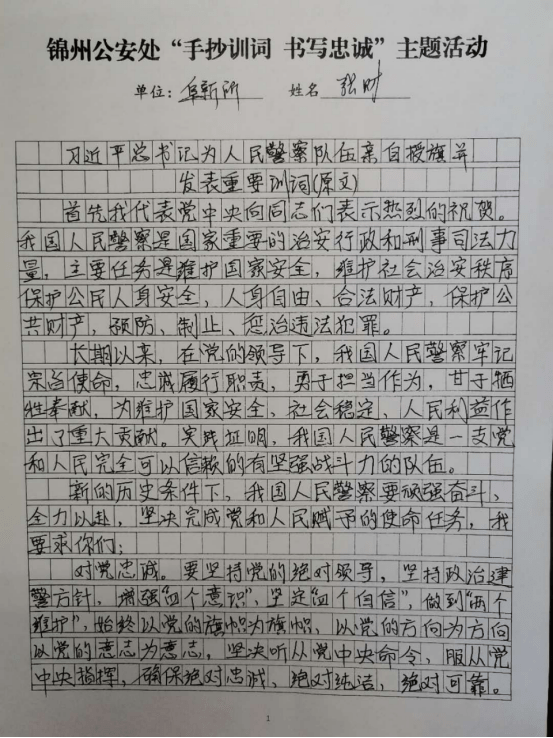 锦州公安处“手抄训词 书写忠诚”主题活动
单位：阜新所 姓名 张财
习近平总书记为人民警察队伍亲自授旗并
发表重要训词(原文)
首先我代表党中央向同志们表示热烈的祝贺。
我国人民警察是国家重要的治安行政和刑事司法力
量，主要任务是维护国家安全，维护社会治安秩序
保护公民人身安全，人身自由、合法财产，保护公
共财产，预防、制止、惩治违法犯罪。
长期以来，在党的领导下，我国人民警察牢记
宗旨使命，忠诚履行职责，勇于担当作为，甘于牺
牲奉献，为维护国家安全、社会稳定、人民利益作
出了重大贡献。实践证明，我国人民警察是一支党
和人民完全可以信赖的有坚强战斗力的队伍。
新的历史条件下，我国人民警察要顽强奋斗、
全力以赴，坚决完成党和人民赋予的使命任务，我
要求你们；
对党忠诚。要坚持党的绝对领导，坚持政治建
警方针，增强“四个意识”、坚定“四个自信”，做到“两个
维护”，始终以党的旗帜为旗帜，以党的方向为方向
以党的意志为意志，坚决听从党中央命令、服从党
中央指挥，确保绝对忠诚、绝对纯洁，绝对可靠。
1